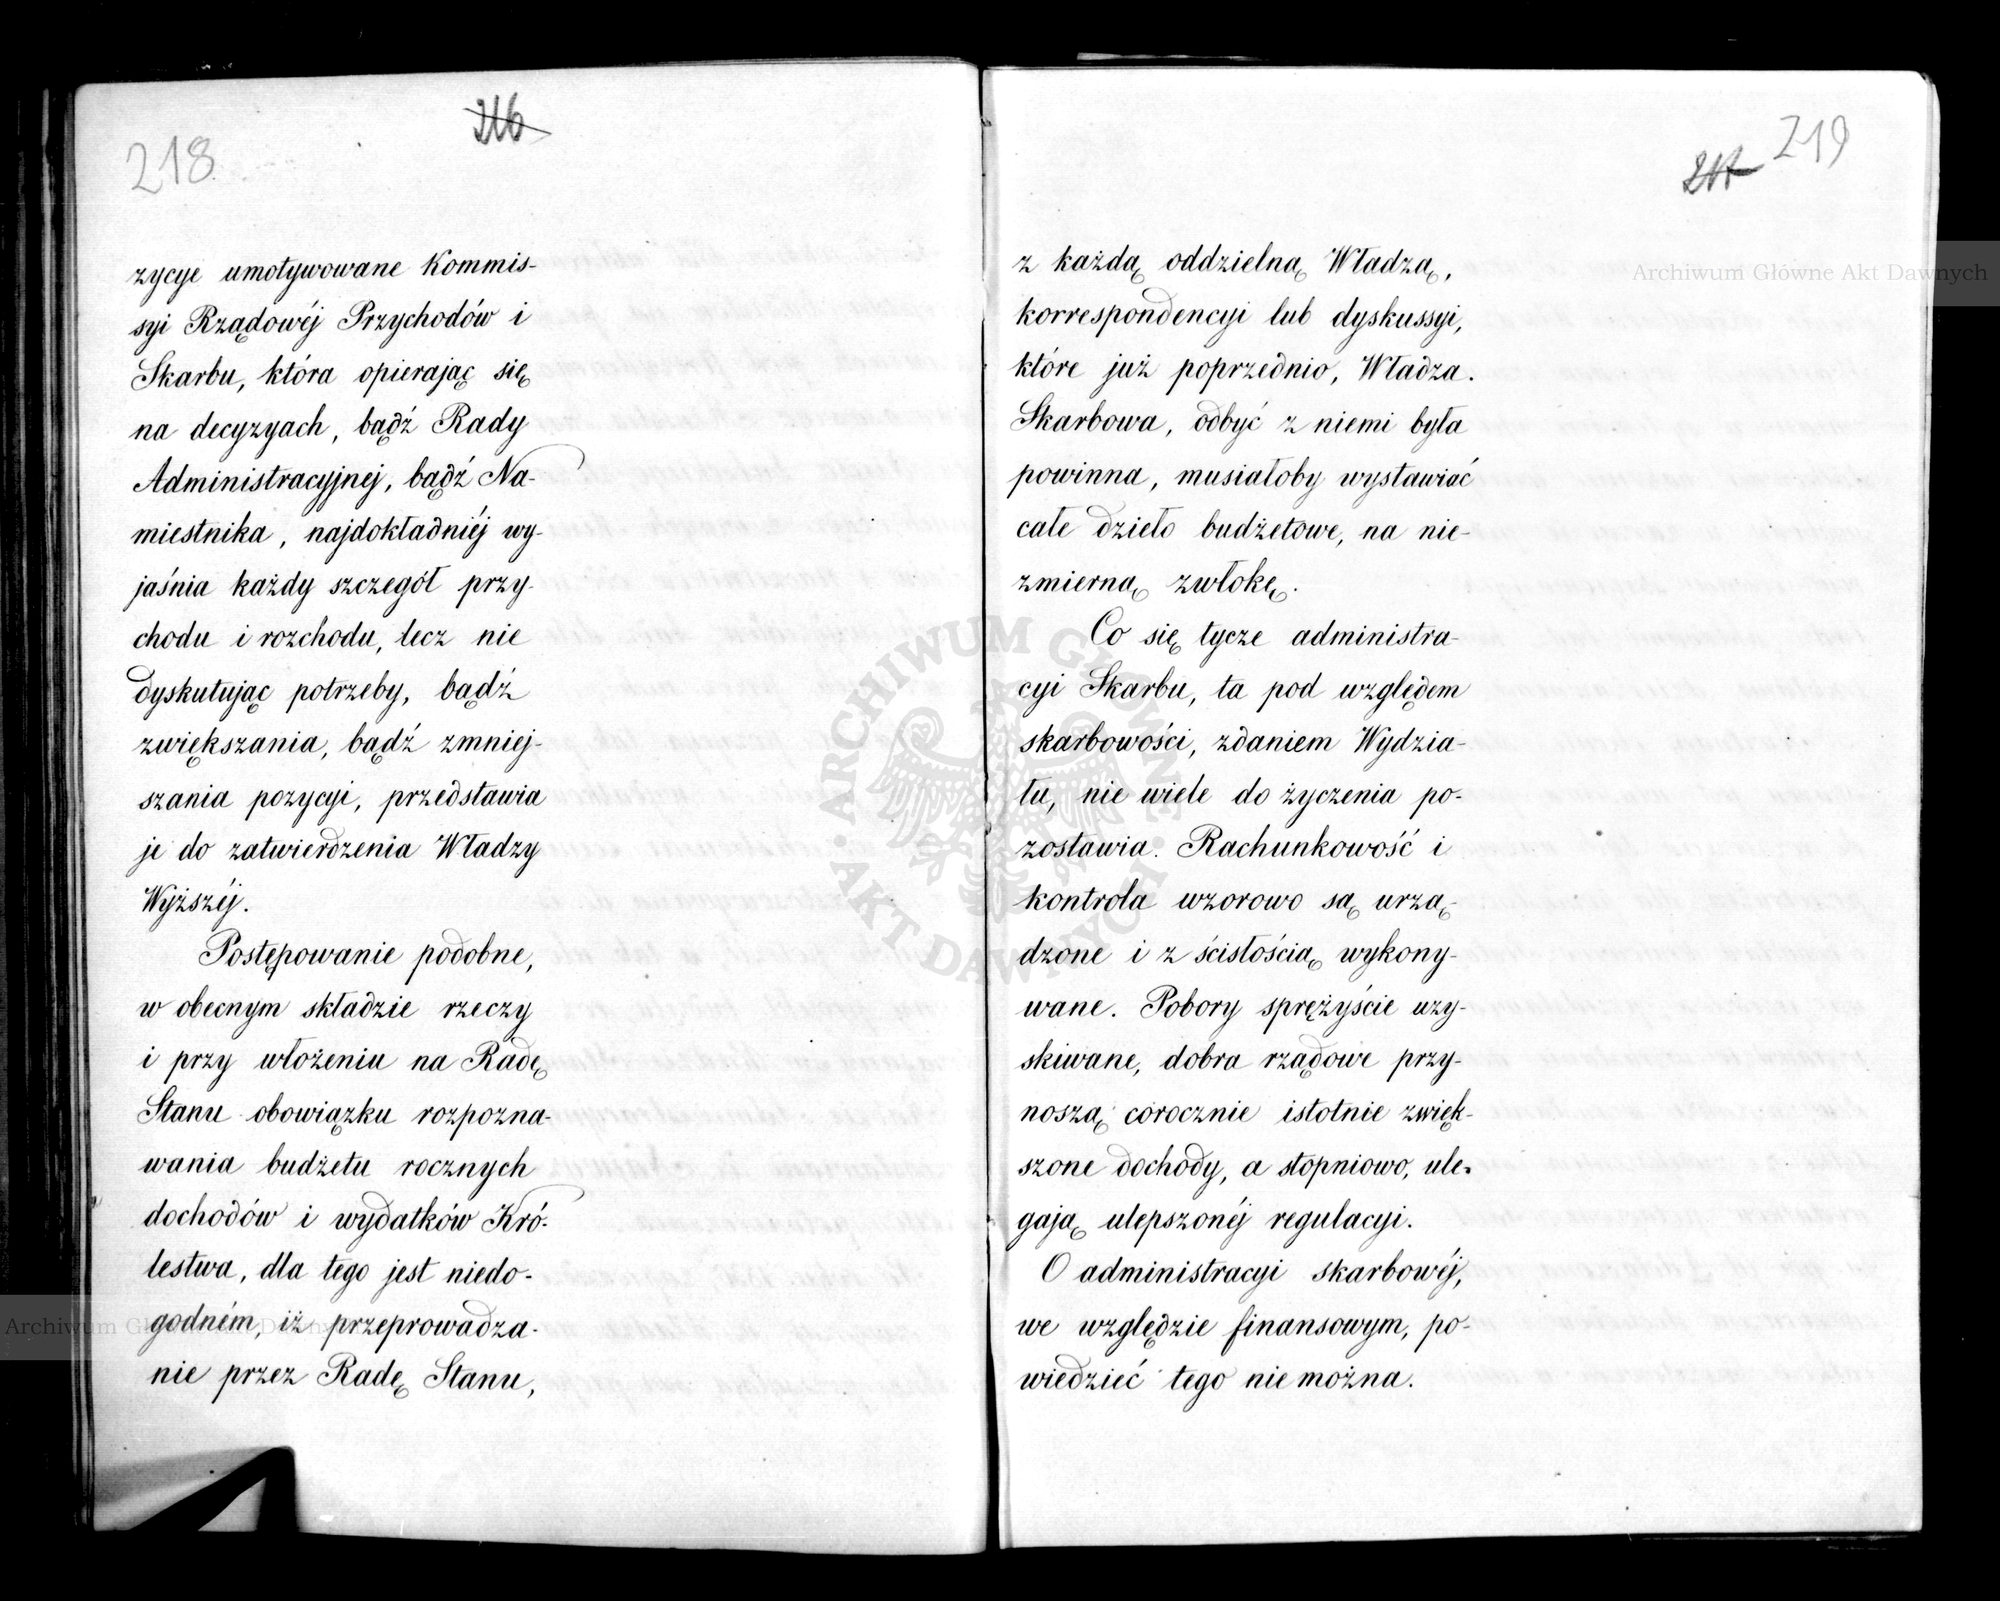 218
216
zycye umotywowane Kommis-
syi Rządowéj Przychodów i
Skarbu, która opierając się
na decyzyach, bądź Rady
Administracyjnej, bądź Na-
miestnika, najdokładniéj wy-
jaśnia każdy szczegół przy-
chodu i rozchodu, lecz nie
dyskutując potrzeby, bądź
zwiększania, bądź zmniej-
szania pozycyi, przedstawia
je do zatwierdzenia Władzy
Wyższéj.
Postępowanie podobne,
w obecnym składzie rzeczy
i przy włożeniu na Radę
Stanu obowiązku rozpozna-
wania budżetu rocznych
dochodów i wydatków Kró-
lestwa, dla tego jest niedo-
godném, iż przeprowadza-
nie przez Radę Stanu,
219
217
z każdą oddzielną Władzą,
korrespondencyi lub dyskussyi,
które już poprzednio, Władza
Skarbowa, odbyć z niemi była
powinna, musiałoby wystawiać
całe dzieło budżetowe, na nie-
zmierną zwłokę.
Co się tycze administra-
cyi Skarbu, ta pod względem
skarbowości, zdaniem Wydzia-
łu, nie wiele do życzenia po-
zostawia. Rachunkowość i
kontrola wzorowo są urzą-
dzone i z ścisłością wykony-
wane. Pobory sprężyście uzy-
skiwane, dobra rządowe przy-
noszą corocznie istotnie zwięk-
szone dochody, a stopniowo, ule-
gają ulepszonéj regulacyi.
O administracyi skarbowéj,
we względzie finansowym, po-
wiedzieć tego nie można.
Archiwum Główne Akt Dawnych
ARCHIWUM GŁÓWNE AKT DAWNYCH
Archiwum Główne Akt Dawnych